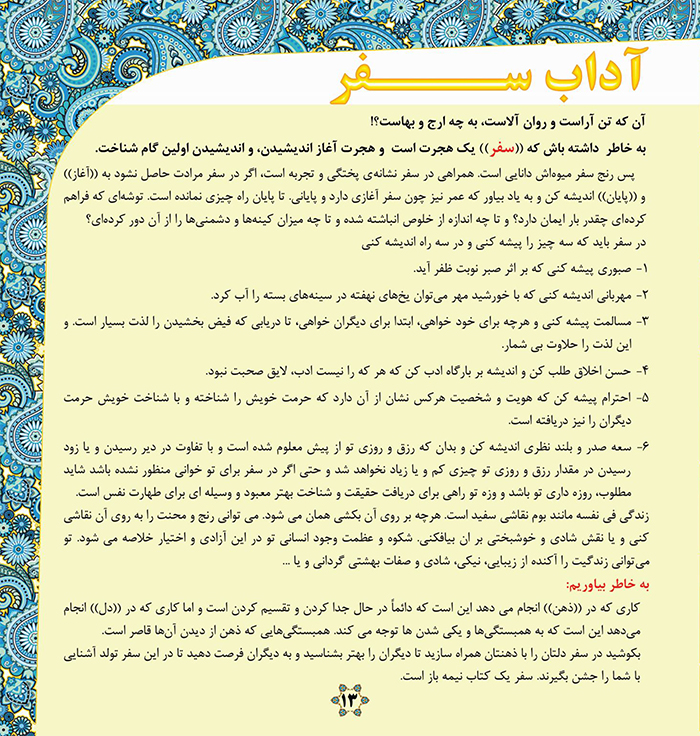 آداب سفر
آن که تن آراست و روان آلاست، به چه ارج و بهاست؟!
به خاطر داشته باش که ((سفر)) یک هجرت است و هجرت آغاز اندیشیدن، و اندیشیدن اولین گام شناخت.
پس رنج سفر میوه‌اش دانایی است. همراهی در سفر نشانه‌ی پختگی و تجربه است، اگر در سفر مرادت حاصل نشود به ((آغاز))
و ((پایان)) اندیشه کن و به یاد بیاور که عمر نیز چون سفر آغازی دارد و پایانی. تا پایان راه چیزی نمانده است. توشه‌ای که فراهم
کرده‌ای چقدر بار ایمان دارد؟ و تا چه اندازه از خلوص انباشته شده و تا چه میزان کینه‌ها و دشمنی‌ها را از آن دور کرده‌ای؟
در سفر باید که سه چیز را پیشه کنی و در سه راه اندیشه کنی
۱- صبوری پیشه کنی که بر اثر صبر نوبت ظفر آید.
۲- مهربانی اندیشه کنی که با خورشید مهر می‌توان یخ‌های نهفته در سینه‌های بسته را آب کرد.
۳- مسالمت پیشه کنی و هرچه برای خود خواهی، ابتدا برای دیگران خواهی، تا دریابی که فیض بخشیدن را لذت بسیار است. و
این لذت را حلاوت بی شمار.
۴- حسن اخلاق طلب کن و اندیشه بر بارگاه ادب کن که هر که را نیست ادب، لایق صحبت نبود.
۵- احترام پیشه کن که هویت و شخصیت هرکس نشان از آن دارد که حرمت خویش را شناخته و با شناخت خویش حرمت
دیگران را نیز دریافته است.
۶- سعه صدر و بلند نظری اندیشه کن و بدان که رزق و روزی تو از پیش معلوم شده است و با تفاوت در دیر رسیدن و یا زود
رسیدن در مقدار رزق و روزی تو چیزی کم و یا زیاد نخواهد شد و حتی اگر در سفر برای تو خوانی منظور نشده باشد شاید
مطلوب، روزه داری تو باشد و وزه تو راهی برای دریافت حقیقت و شناخت بهتر معبود و وسیله ای برای طهارت نفس است.
زندگی فی نفسه مانند بوم نقاشی سفید است. هرچه بر روی آن بکشی همان می شود. می توانی رنج و محنت را به روی آن نقاشی
کنی و یا نقش شادی و خوشبختی بر ان بیافکنی. شکوه و عظمت وجود انسانی تو در این آزادی و اختیار خلاصه می شود. تو
می‌توانی زندگیت را آکنده از زیبایی، نیکی، شادی و صفات بهشتی گردانی و یا ...
به خاطر بیاوریم:
کاری که در ((ذهن)) انجام می دهد این است که دائماً در حال جدا کردن و تقسیم کردن است و اما کاری که در ((دل)) انجام
می‌دهد این است که به همبستگی‌ها و یکی شدن ها توجه می کند. همبستگی‌هایی که ذهن از دیدن آن‌ها قاصر است.
بکوشید در سفر دلتان را با ذهنتان همراه سازید تا دیگران را بهتر بشناسید و به دیگران فرصت دهید تا در این سفر تولد آشنایی
با شما را جشن بگیرند. سفر یک کتاب نیمه باز است.
۱۳